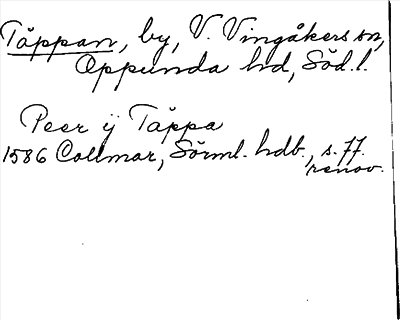 Täppan, by, V. Vingåkers sn,
Oppunda hd, Söd.l.
Peer ÿ Täppa
1586 Collmar, Sörml. hdb., s. 77.
renov.